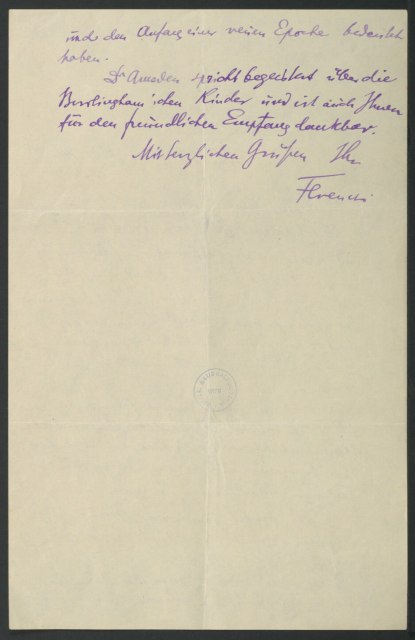 und den Anfang einer neuen Epoche bedeutet
haben.
Dr Amsden spricht begeistert über die
Burlingham'schen Kinder und ist auch Ihnen
für den freundlichen Empfang dankbar.
Mit herzlichen Grüßen Ihr
Ferenczi